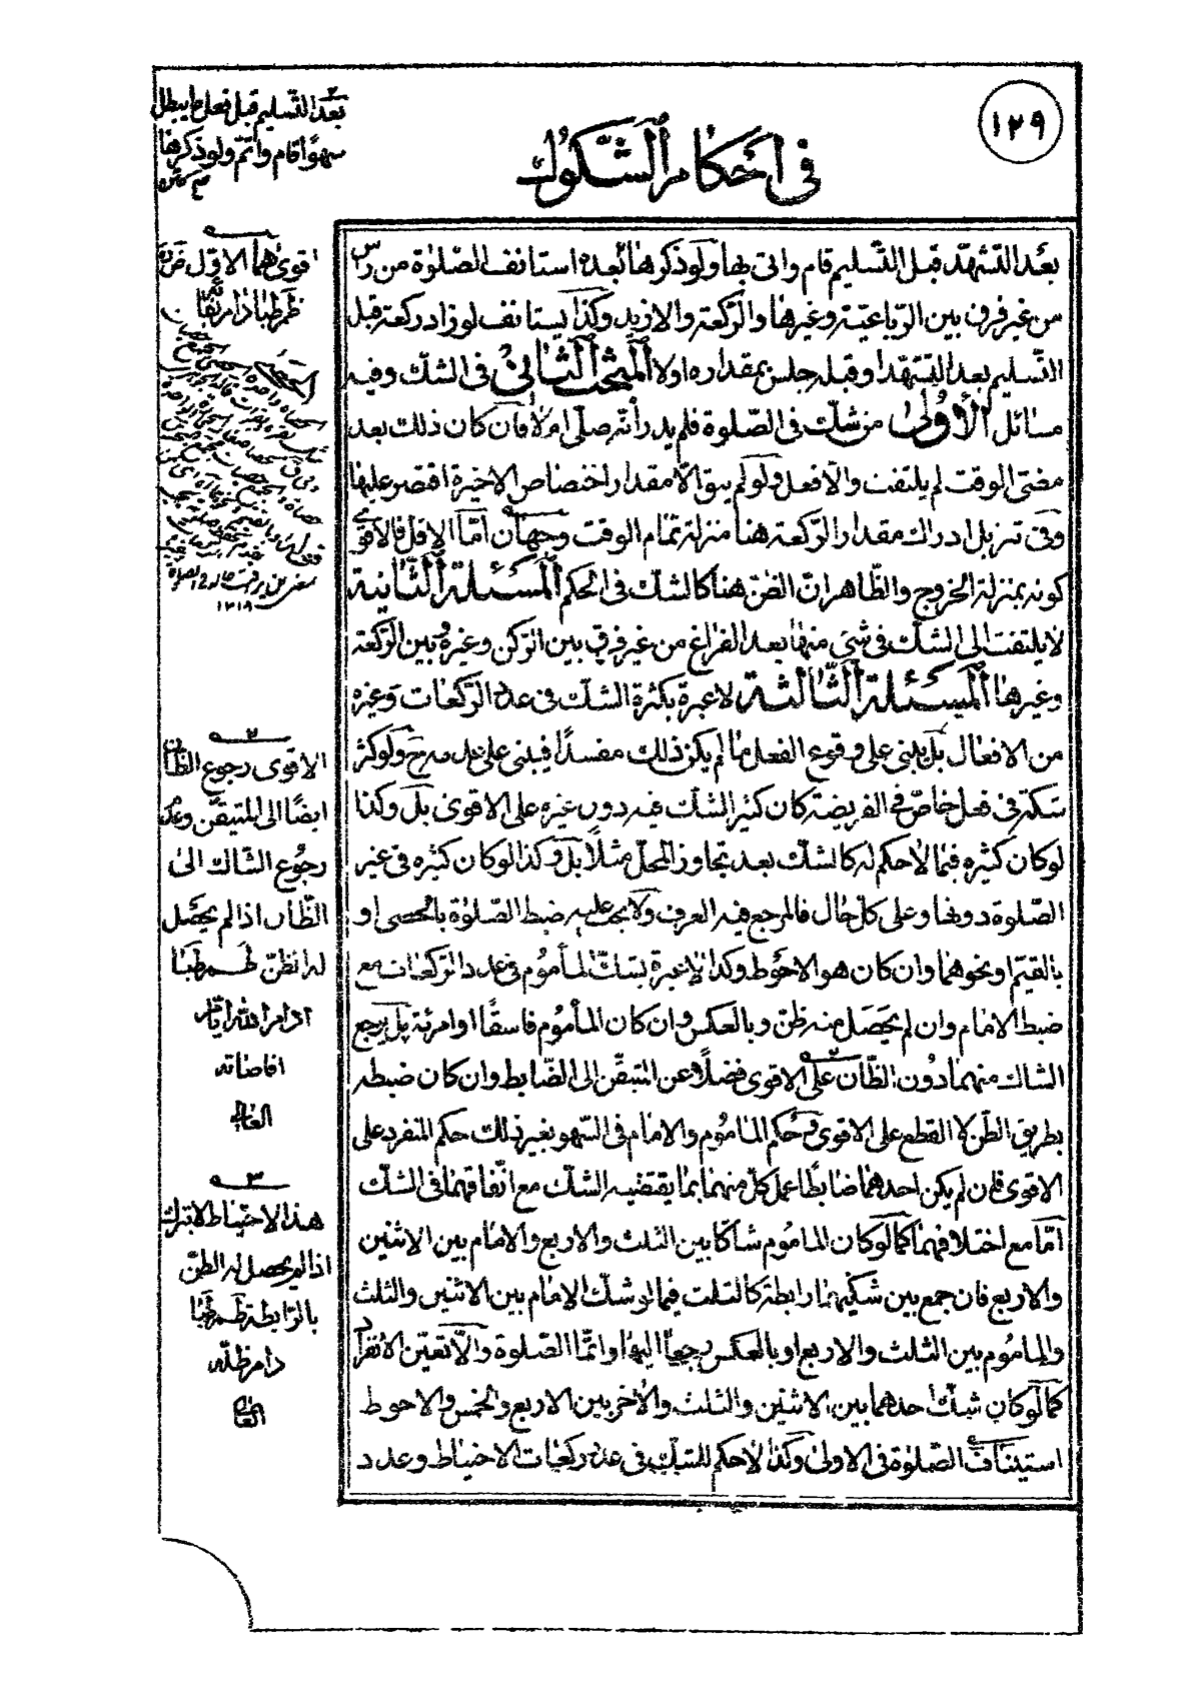 ١٢٩
في احكام الشكوك
بعد التشهد قبل التسليم قام واتى بها ولو ذكرها بعده استانف الصلوة من راس
من غير فرق بين الرباعية وغيرها والركعة والازيد وكذا يستانف لو زاد ركعة قبل
التسليم بعد التشهد او قبله جلس بمقداره او لا المبحث الثاني في الشك وفيه
مسائل الأولى من شك في الصلوة فلم يدر أنه صلى ام لا فان كان ذلك بعد
مضى الوقت لم يلتفت والا فعل ولو لم يبق الا مقدار اختصاص الاخيرة اقتصر عليها
وفي تنزيل ادراك مقدار الركعة هنا منزلة تمام الوقت وجهان اما الاقل فالاقوى
كونه بمنزلة الخروج والظاهر ان الظن هنا كالشك في الحكم المسئلة الثانية
لا يلتفت الى الشك في شئ منها بعد الفراغ من غير فرق بين الركن وغيره وبين الركعة
وغيرها المسئلة الثالثة لا عبرة بكثرة الشك في عدد الركعات وغيره
من الافعال بل يبنى على وقوع الفعل ما لم يكن ذلك مفسدا فيبنى على عدمه ولو كثر
شكه في فعل خاص في الفريضة كان كثير الشك فيه دون غيره على الاقوى بل وكذا
لو كان كثيره فيما لا حكم له كالشك بعد تجاوز المحل مثلا بل وكذا لو كان كثيره في غير
الصلوة دونها وعلى كل حال فالمرجع فيه العرف ولا يجب عليه ضبط الصلوة بالحصى او
بالقيم او نحوهما وان كان هو الاحوط وكذا لا عبرة بشك المأموم في عدد الركعات مع
ضبط الامام وان لم يحصل منه ظن وبالعكس وان كان المأموم فاسقا او امرئة بل يرجع
الشاك منهما دون الظان على الاقوى فضلا عن المتيقن الى الضابط وان كان ضبطه
بطريق الظن لا القطع على الاقوى وحكم الماموم والامام في السهو بغير ذلك حكم المنفرد على
الاقوى فان لم يكن احدهما ضابطا عمل كل منهما بما يقتضيه الشك مع اتفاقهما في الشك
اما مع اختلافهما كما لو كان الماموم شاكا بين الثلث والاربع والامام بين الاثنين
والاربع فان جمع بين شكيهما رابطة كالثلث فيما لو شك الامام بين الاثنين والثلث
والماموم بين الثلث والاربع او بالعكس رجعا اليها واتما الصلوة والا تعين الانفراد
كما لو كان شك احدهما بين الاثنين والثلث والاخر بين الاربع والخمس والاحوط
استيناف الصلوة في الاولى وكذا لا حكم للشك في عدد ركعات الاحتياط وعدد
بعد التسليم قبل فعل ما يبطل
سهوا قام واتم ولو ذكرها
اقويهما الاول
١٣١٨
٢
الاقوى رجوع الظان
ايضا الى المتيقن وعدم
رجوع الشاك الى
الظان اذا لم يحصل
له الظن
ادام الله ايام
افاضاته
العالي
٣
هذا الاحتياط لا يترك
اذا لم يحصل له الظن
بالرابطة
دام ظله
العالي